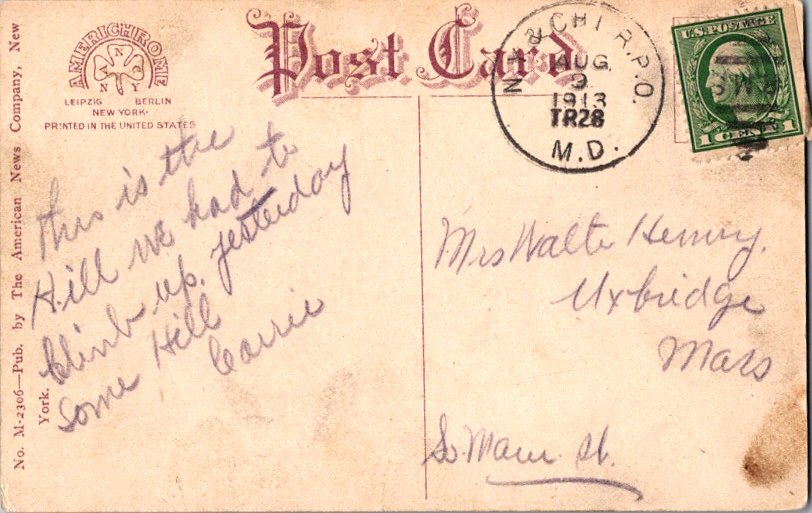 AMERICHROME
N Co
N Y
LEIPZIG BERLIN
NEW YORK
PRINTED IN THE UNITED STATES
Post Card
N.Y. & CHI R.P.O.
AUG
9
1913
TR28
M.D.
U.S. POSTAGE
1 CENT 1
No. M-2306—Pub. by The American News Company, New
York.
This is the
Hill we had to
Climb up yesterday
Some Hill
Carrie
Mrs Walte Henry.
Uxbridge
Mass
So. Main St.